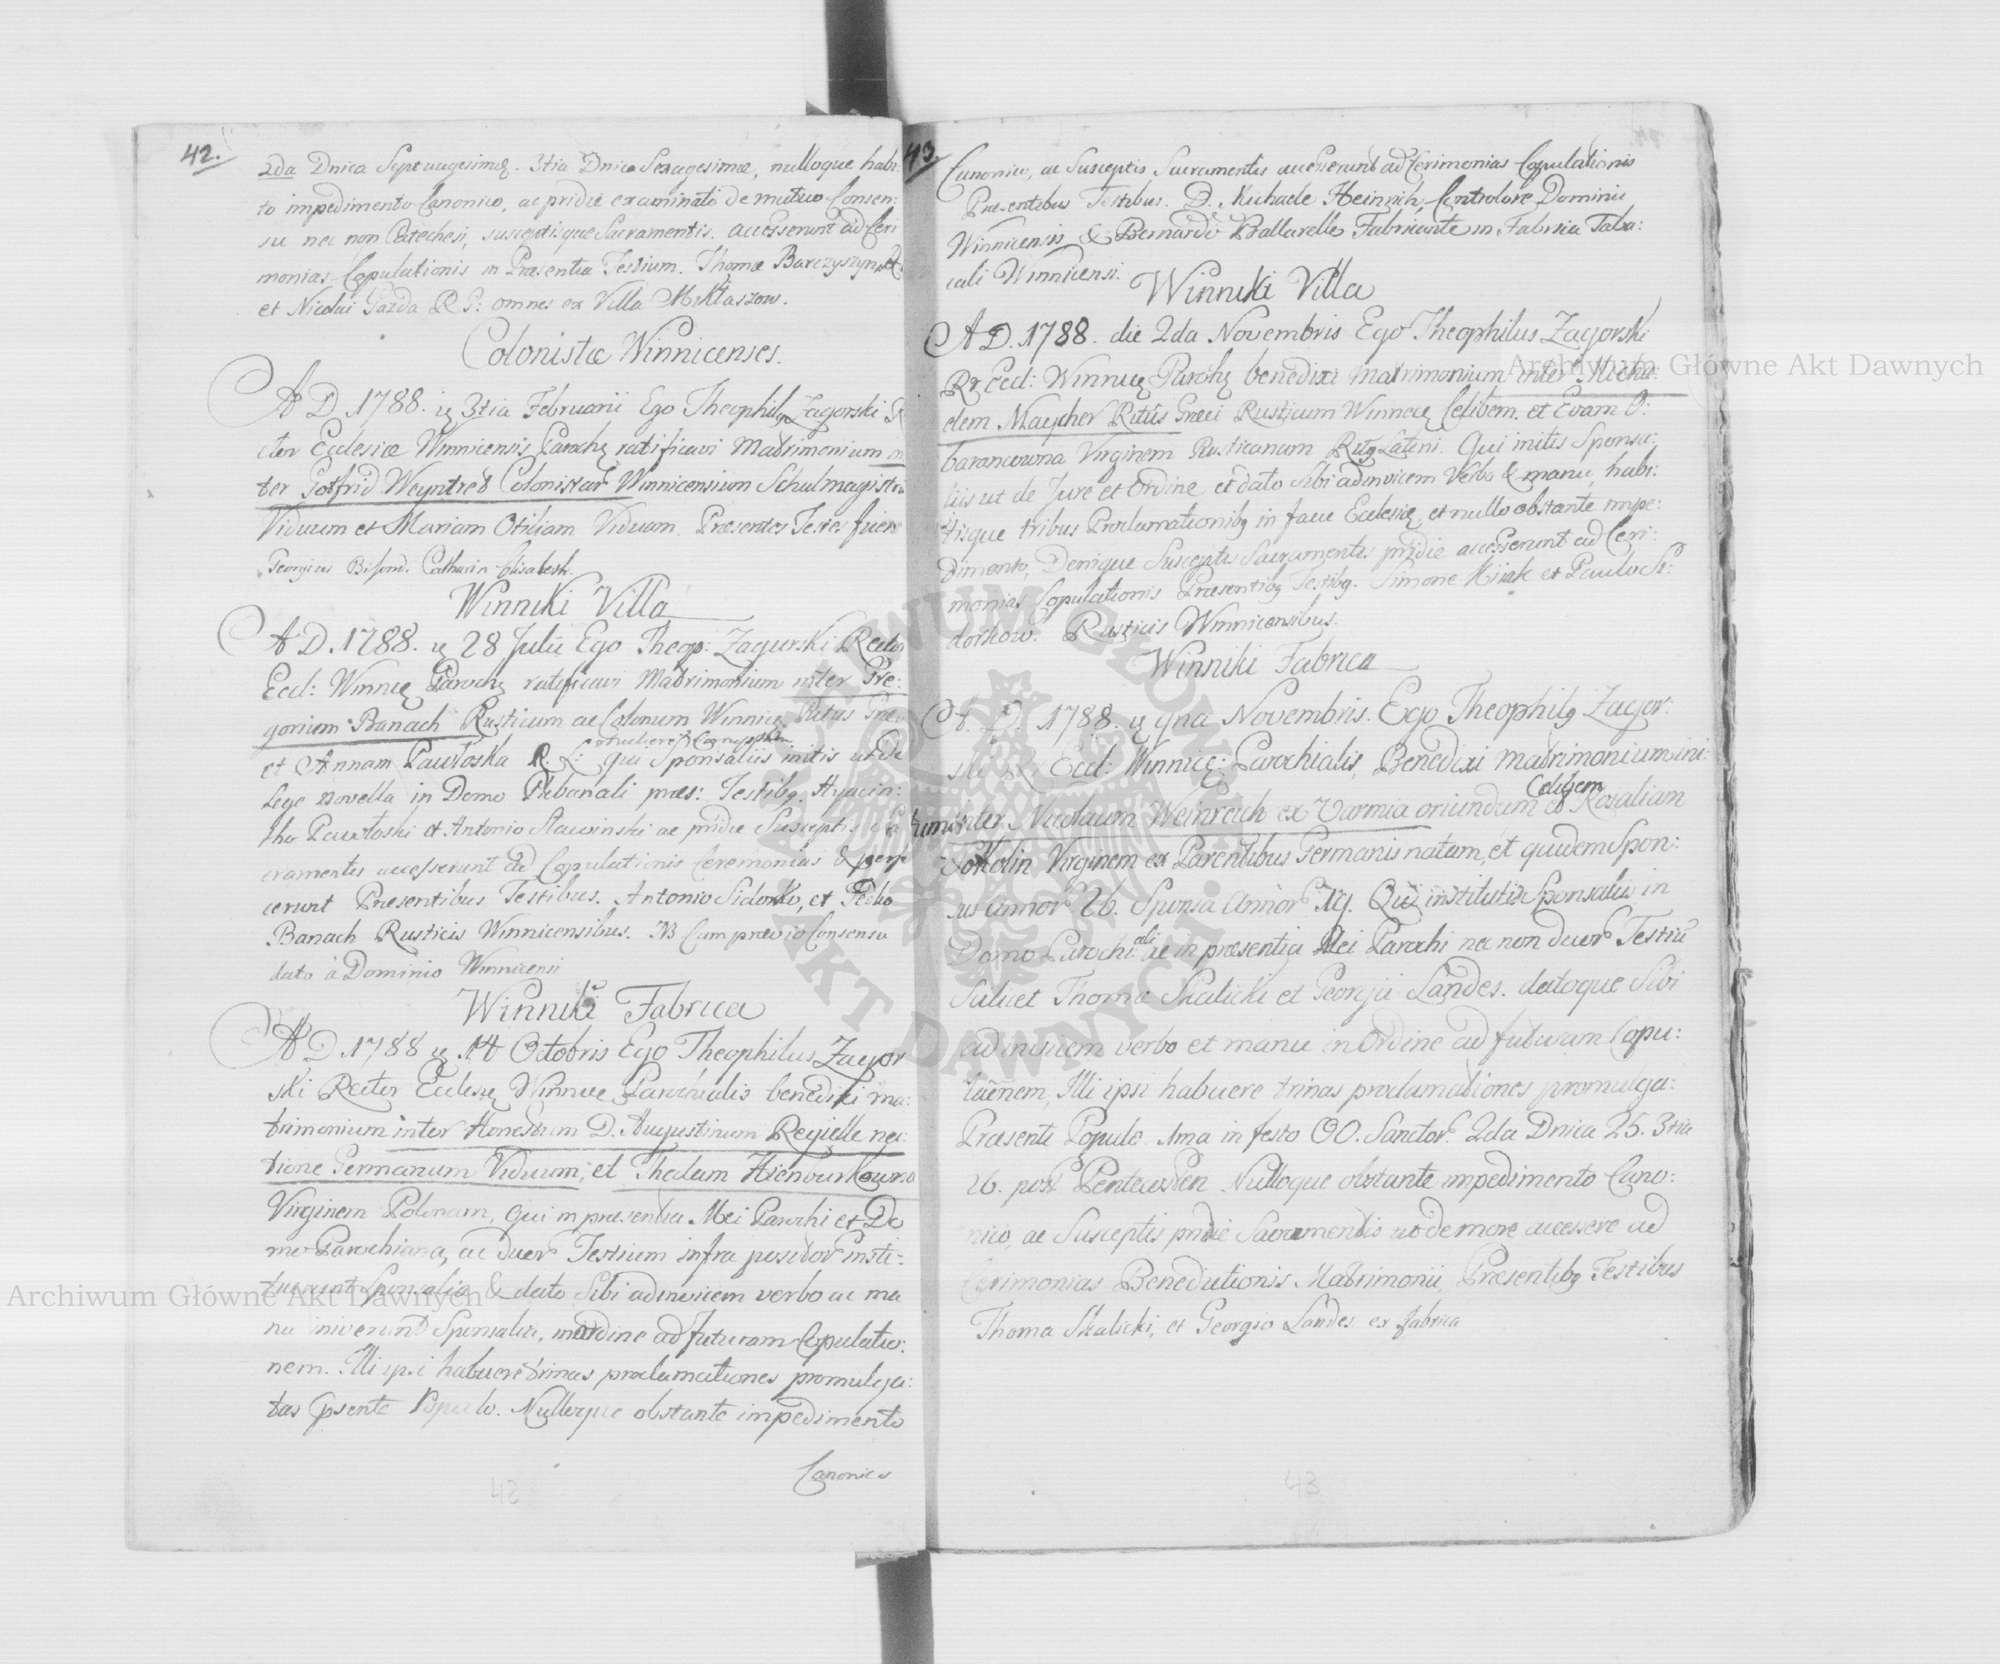 42.
2da Dnica Septuagesimę. 3tia Dnica Sexagesimæ, nulloque habi:
to impedimento Canonico, ac pridie examinati de mutuo Consen:
su nec non Catechesi, susceptisque Sacramentis. accesserunt ad Ceri
monias Copulationis in Præsentia Testium. Thomæ Barczyszyn
et Nicolai Gazda R G: omnes ex Villa Miklaszow.
Colonistæ Winnicenses.
A D. 1788. ię 3tia Februarii Ego Theophilę Zagorski R
ctor Ecclesiæ Winnicensis Parochę ratificavi Matrimonium in
ter Gotfrid Weyntret Colonistar Winnicensium Schulmagistru
Viduum et Mariam Otiliam Viduam. Præsentes Testes fuere
Georgius Catharin Elisabeth.
Winniki Villa
A D. 1788. ię 28 Julii Ego Theop: Zagorski Rector
Eccl: Winnię Parochę ratificavi Matrimonium inter Gre:
goriem Banach Rusticum ac Colonum Winnicę Ritus Græci
et Annam Pawłoska R. L: qui Sponsaliis initis ut de
Lege novella in Domo Plebanali præs: Testibę. Hyacin:
tho Pawłoski et Antonio Sławinski ac pridie Susceptis Sa
cramentis accesserunt ad Copulationis Ceremonias & perfe
cerunt Presentibus Testibus. Antonio Sidorko, et Fedko
Banach Rusticis Winnicensibus. NB Cum prævio Consensu
dato à Dominio Winnicensi
Winniki Fabrica
A D. 1788 ię 14 Octobris Ego Theophilus Zagor
ski Rector Ecclesię Winnicę Parochialis benedixi ma:
trimonium inter Honestum D. Augustinum Regielle na:
tione Germanum Viduum, et Theclam
Virginem Polonam, Qui in præsentia Mei Parochi et Do
mo Parochiana, ac duor Testium infra positor insti:
tuerunt Sponsalia & dato Sibi adinvicem verbo ac ma
nu iniverunt Sponsalia, in ordine ad futuram Copulatio:
nem. Illi ipsi habuere trinas proclamationes promulga:
tas psente Populo. Nulloque obstante impedimento
Canonico
43
Canonico, ac Susceptis Sacramentis accesserunt ad Cerimonias Copulationis
Præsentibus Testibus. D. Michaele Heinrich, Controlore Dominii
Winnicensis & Bernardo Ballarelle Fabricante in Fabrica Taba:
cali Winnicensi.
Winniki Villa
A D. 1788. die 2da Novembris Ego Theophilus Zagorski
Rr Eccl: Winnicę Parochę benedixi Matrimonium inter Micha:
elem Maycher Ritûs Græci Rusticum Winnicę Celibem. et Evam O:
barancowna Virginem Rusticanam Ritę Latini. Qui initis Sponsa:
liis ut de Jure et Ordine et dato Sibi adinvicem Verbo & manu, habi:
tisque tribus Proclamationibę in facie Ecclesię, et nullo obstante impe:
dimento, Denique Susceptis Sacramentis pridie accesserunt ad Ceri:
monias Copulationis Præsentibę Testibę. Simone et Paulo Si:
dorkow. Rusticis Winnicensibus.
Winniki Fabrica
A. D. 1788. ię 9na Novembris. Ego Theophilę Zagor:
ski Rr Eccl: Winnicę: Parochialis, Benedixi Matrimonium ini:
tum inter Nicolaum Weinreich ex Varmia oriundum Celibem et Rosaliam
Virginem ex Parentibus Germanis natam, et quidem Spon:
sus annor 26. Sponsa annor 19. Qui institutis Sponsaliis in
Domo Parochiali ac in præsentia Mei Parochi nec non duor Testiũ
Scilicet Thomæ Skalicki et Georgii Landes. datoque Sibi
adinvicem verbo et manu in Ordine ad futuram Copu:
laõnem, Illi ipsi habuere trinas proclamationes promulga:
Præsente Populo. 1ma in festo OO. Sanctor. 2da Dnica 25. 3tia
26. post Pentecosten Nulloque obstante impedimento Cano:
nico, ac Susceptis pridie Sacramentis ut de more accessere ad
Cerimonias Benedictionis Matrimonii, Præsentibę Testibus
Thoma Skalicki, et Georgio Landes ex fabrica
42
43
Archiwum Główne Akt Dawnych
Archiwum Główne Akt Dawnych
ARCHIWUM GŁÓWNE AKT DAWNYCH